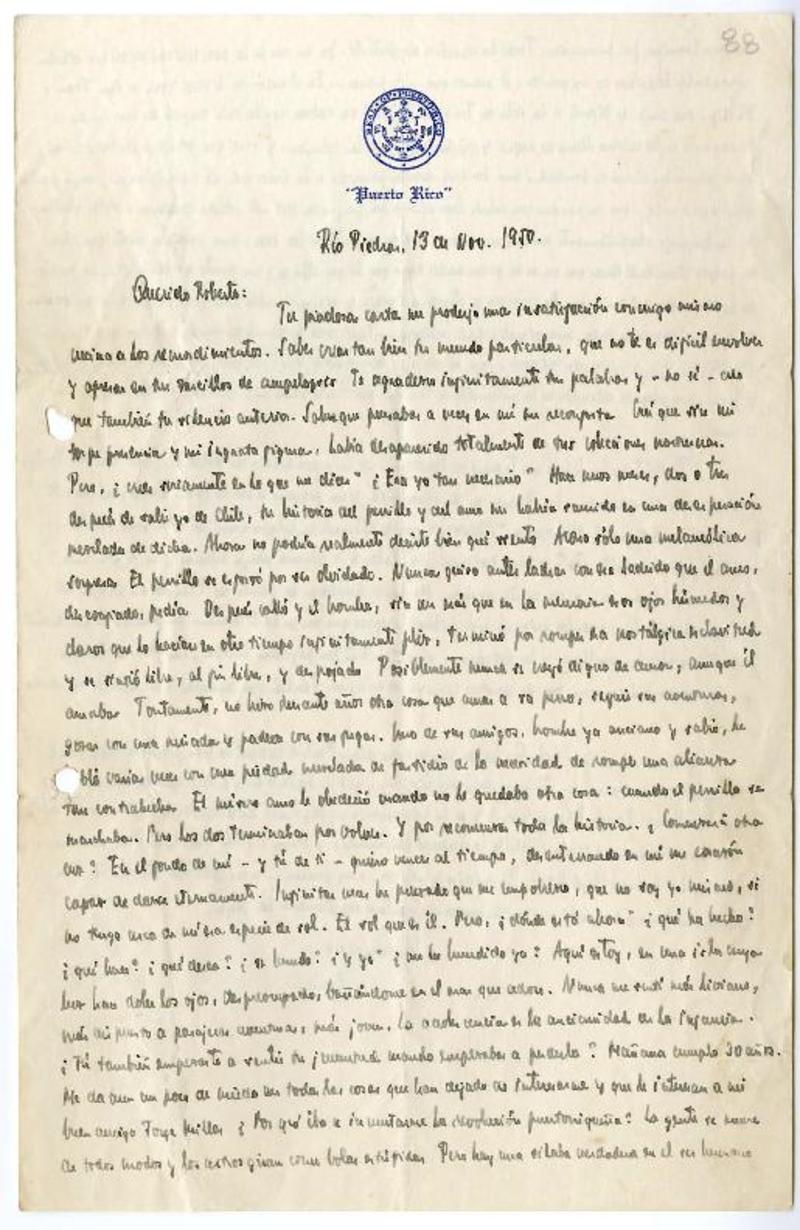 88
SEAL OF PUERTO RICO
"Puerto Rico"
Río Piedras, 13 de Nov. 1950.
Querido Roberto:
Tu piadosa carta me produjo una insatisfacción conmigo mismo
vecina a los remordimientos. Sabes crear tan bien tu mundo particular, que no te es difícil envolver
y apresar en tus zarcillos de Te agradezco infinitamente tus palabras y - no sé - creo
que también tu silencio anterior. Saber que pensabas a veces en mí me reconforta. Creí que sin mi
torpe presencia y mi ingrata figura, había desaparecido totalmente de tus
Pero, ¿crees seriamente en lo que me dices? ¿Era yo tan necesario? Hace unos meses, dos o tres
después de salir yo de Chile, tu historia del perrillo y del amo me había sumido en una desesperación
mezclada de dicha. Ahora no podría realmente decirte bien qué siento. Acaso sólo una melancólica
sorpresa. El perrillo se esforzó por ser olvidado. Nunca quiso antes ladrar con ese ladrido que el amo,
desconfiado, pedía. Después calló y el hombre, sin ver más que en la memoria esos ojos húmedos y
claros que lo hacían en otro tiempo infinitamente feliz, terminó por romper su nostálgica esclavitud
y se sintió libre, al fin libre, y despojado. Posiblemente nunca se creyó digno de amor, aunque él
amaba. Tontamente, no hizo durante años otra cosa que amar a su perro, seguir sus aventuras,
gozar con una mirada y padecer con sus fugas. Uno de sus amigos, hombre ya anciano y sabio, le
habló varias veces con una piedad mezclada de fastidio de la necesidad de romper una alianza
tan contrahecha. El mismo amo le obedeció cuando no le quedaba otra cosa: cuando el perrillo se
marchaba. Pero los dos terminaban por volver. Y por recomenzar toda la historia. ¿Comenzará otra
vez? En el fondo de mí - y tú de ti - quiero vencer al tiempo, desenterrando en mí un corazón
capaz de darse eternamente. Infinitas veces he pensado que me empobrezco, que no soy yo mismo, si
no tengo cerca de mí esa especie de sol. El sol que es él. Pero, ¿dónde está ahora? ¿qué ha hecho?
¿qué hace? ¿qué desea? ¿se hunde? ¿Y yo? ¿me he hundido ya? Aquí estoy, en una isla cuya
luz hace doler los ojos, despreocupado, bañándome en el mar que adoro. Nunca me sentí más liviano,
más dispuesto a pasajeras aventuras, más joven. La adolescencia es la ancianidad de la infancia.
¿Tú también empezaste a sentir tu juventud cuando empezabas a perderla? Mañana cumplo 30 años.
Me da aún un poco de miedo ver todas las cosas que han dejado de interesarme y que le interesan a mi
buen amigo Jorge Millas. ¿Por qué iba a inquietarme la revolución puertorriqueña? La gente se muere
de todos modos y los astros giran como bolas estúpidas. Pero hay una sílaba verdadera en el ser humano